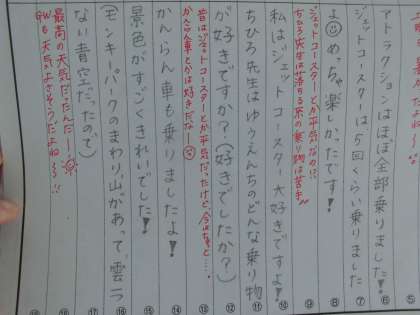 アトラクションはほぼ全部乗りました!
ジェットコースターは5回くらい乗りました
よ😊めっちゃ楽しかったです!!
ジェットコースターとか平気なの!?
ちひろ先生は落ちる系の乗り物は苦手〜
私はジェットコースター大好きですよ!
ちひろ先生はゆうえんちのどんな乗り物
が好きですか?(好きでしたか?)
昔はジェットコースターとか平気だったけど今はちょっと…。
かんらん車とかは好きだな〜
かんらん車も乗りましたよ!
景色がすごくきれいでした!
(モンキーパークのまわり、山があって、雲ひと
ない青空だったので)
最高の天気だったんだー!
GWも天気よさそうだよね〜!!